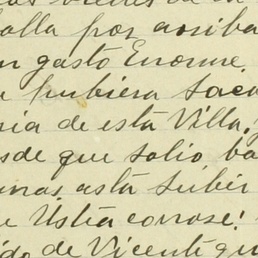 alla por arriba
gasto Enorme
hubiera saca
ria de esta Villa,
sde que salio ba
unas asta subir
Ustea conose!
ido de Vicente qu